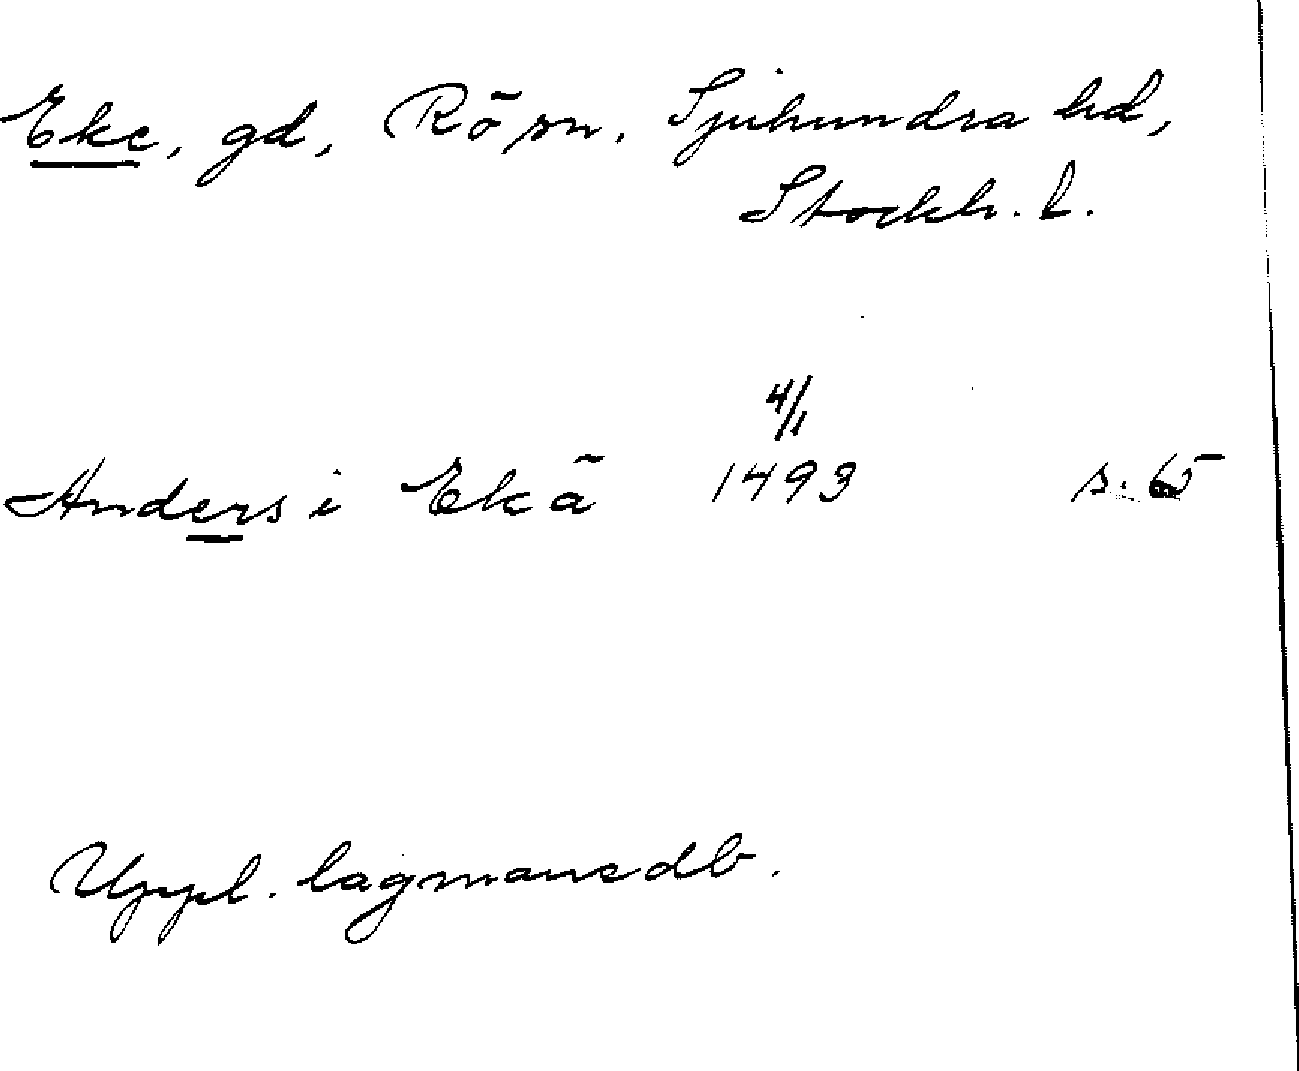 Eke, gd, Rö sn. Sjuhundra hd,
Stockh. l.
4/1
Anders i Ekä 1493 s. 65
Uppl. lagmansdb.